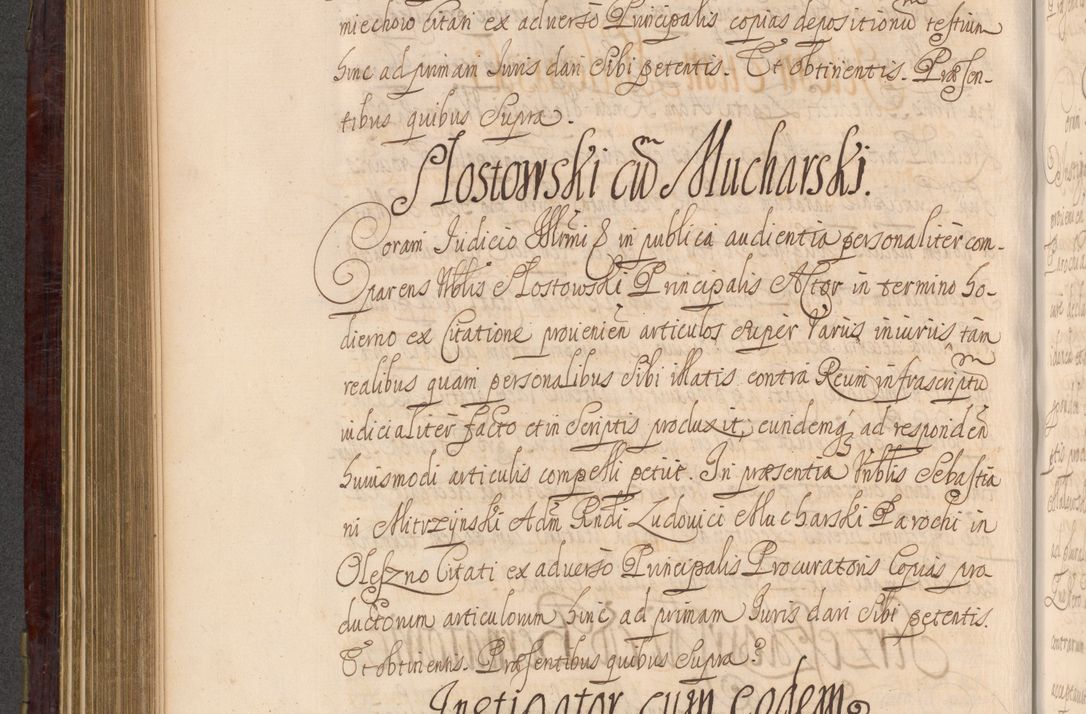 miechow Citati ex adverso Principalis copias depositionũ testium
hinc ad primam Iuris dari Sibi petentis. Et obtinentis. Præsen-
tibus quibus Supra.
Slostowski cũ Mucharski.
Coram Iudicio Illrmi & in publica audientia personaliter com-
parens Nobilis Slostowski Principalis Actor in termino ho-
dierno ex Citatione provenien̄ articulos super varijs iniurijs tam
realibus quam personalibus Sibi illatis contra Reum infrascriptũ
iudicialiter facto et in Scriptis produxit, eundemq́ ad responden̄
huiusmodi articulis compelli petiit. In præsentia Nobilis Sebastia
ni Mitrzynski Adm̄ Rndi Ludovici Mucharski Parochi in
Oleszno Citati ex adverso Principalis Procuratoris Copias pro
ductorum articulorum hinc ad primam Iuris dari Sibi petentis.
Et obtinentis. Præsentibus quibus Supra.
Instigator cum eodem